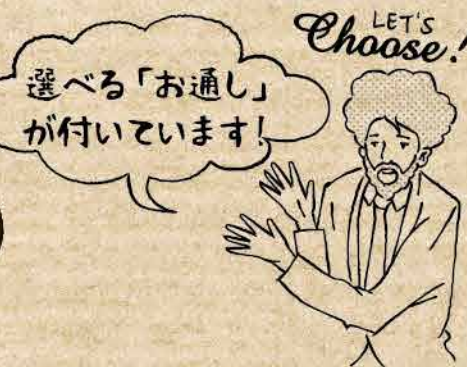 LET'S
Choose!
選べる「お通し」
が付いています!